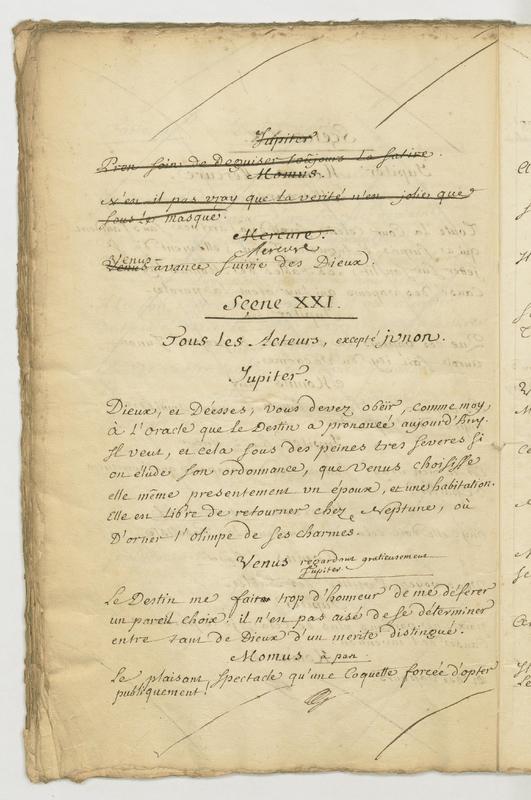 Jupiter
Pren soin de Deguiser toûjours la Satire.
Momus.
N'en il pas vray que la verité n'en jolie que
sous le masque.
Mercure.
Mercure
Venus
Venus avance suivie des Dieux.
Sçene XXI.
Tous les Acteurs, excepté junon.
Jupiter
Dieux, et Déesses, vous devez obéir, comme moy,
à l'Oracle que le Destin a prononcé aujourd'huy.
Il veut, et cela sous des peines tres severes si
on élude son ordonnance, que Venus choisisse
elle même presentement un époux, et une habitation.
Elle en libre de retourner chez Neptune, où
D'orner l'olimpe de ses charmes.
Venus regardant gratieusement
Jupiter
Le Destin me fait trop d'honneur de me déferer
un pareil choix: il n'en pas aisé de se déterminer
entre tant de Dieux d'un merite distingué.
Momus à part
Le plaisant spectacle qu'une Coquette forcée d'opter
publiquement!